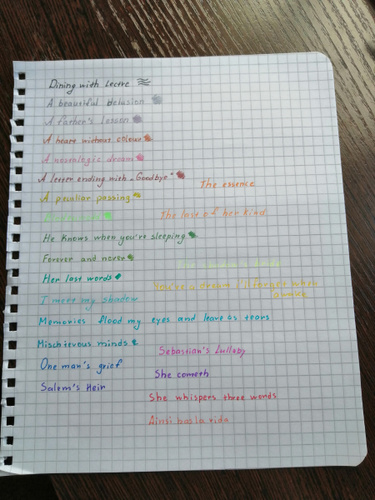 Dining with Lectre
A beautiful delusion
A father's lesson
A heart without colour
A nostalgic dream
A letter ending with „Goodbye"
The essence
A peculiar passing
The last of her kind
He knows when you're sleeping
Forever and never
Her last words
You're a dream I'll forget when
I meet my shadow
Memories flood my eyes and leave as tears
Mischievous minds
Sebastian's Lullaby
One man's grief
She cometh
Salem's Heir
She whispers three words
Ainsi bas la vida